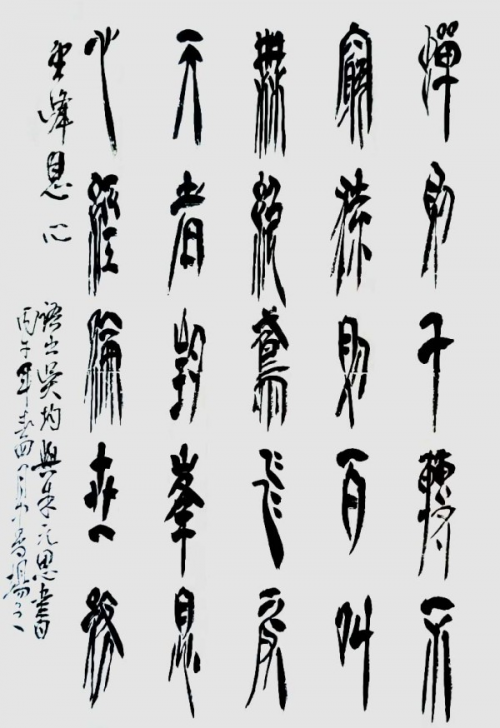 蟬則千轉不
窮猿則百叫
無絕鳶飛戾
天者望峯息
心經綸世務
望峰息心
語出吳均與朱元思書
丙午年春